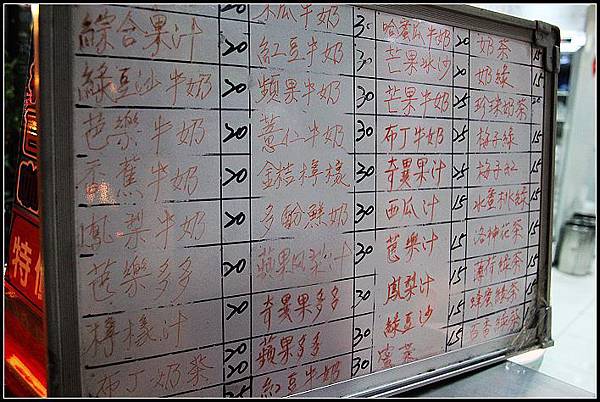 綜合果汁 20
綠豆沙牛奶 20
芭樂牛奶 20
香蕉牛奶 20
鳳梨牛奶 20
芭樂多多 20
檸檬汁 20
布丁奶茶 25
木瓜牛奶 30
紅豆牛奶 30
蘋果牛奶 30
薏仁牛奶 30
金桔檸檬 30
多酚鮮奶 30
蘋果鳳梨汁 30
奇異果多多 30
蘋果多多 30
紅豆牛奶
哈蜜瓜牛奶 20
芒果冰沙 25
芒果牛奶 25
布丁牛奶 25
奇異果汁 25
西瓜汁 15
芭樂汁 15
鳳梨汁 15
綠豆沙 15
奶茶 15
奶綠 15
珍珠奶茶 20
梅子綠 15
梅子紅 15
水蜜桃綠 15
洛神花茶 15
薄荷綠茶 15
蜂蜜綠茶 15
百香綠茶 15
特價